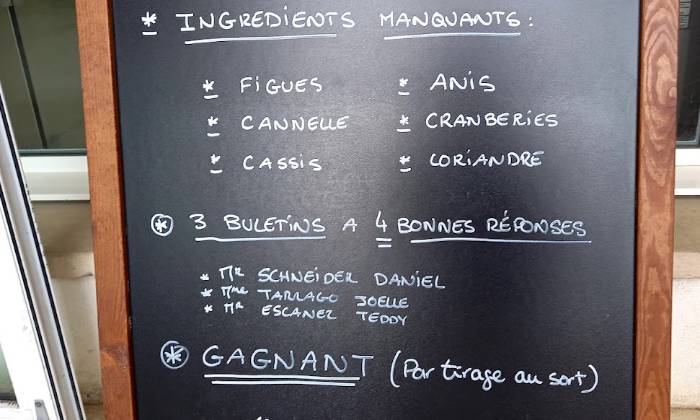 * INGREDIENTS MANQUANTS :
* FIGUES * ANIS
* CANNELLE * CRANBERIES
* CASSIS * CORIANDRE
* 3 BULETINS A 4 BONNES RÉPONSES
* Mr SCHNEIDER DANIEL
* Mme TARRAGO JOELLE
* Mr ESCANEZ TEDDY
* GAGNANT (Par tirage au sort)